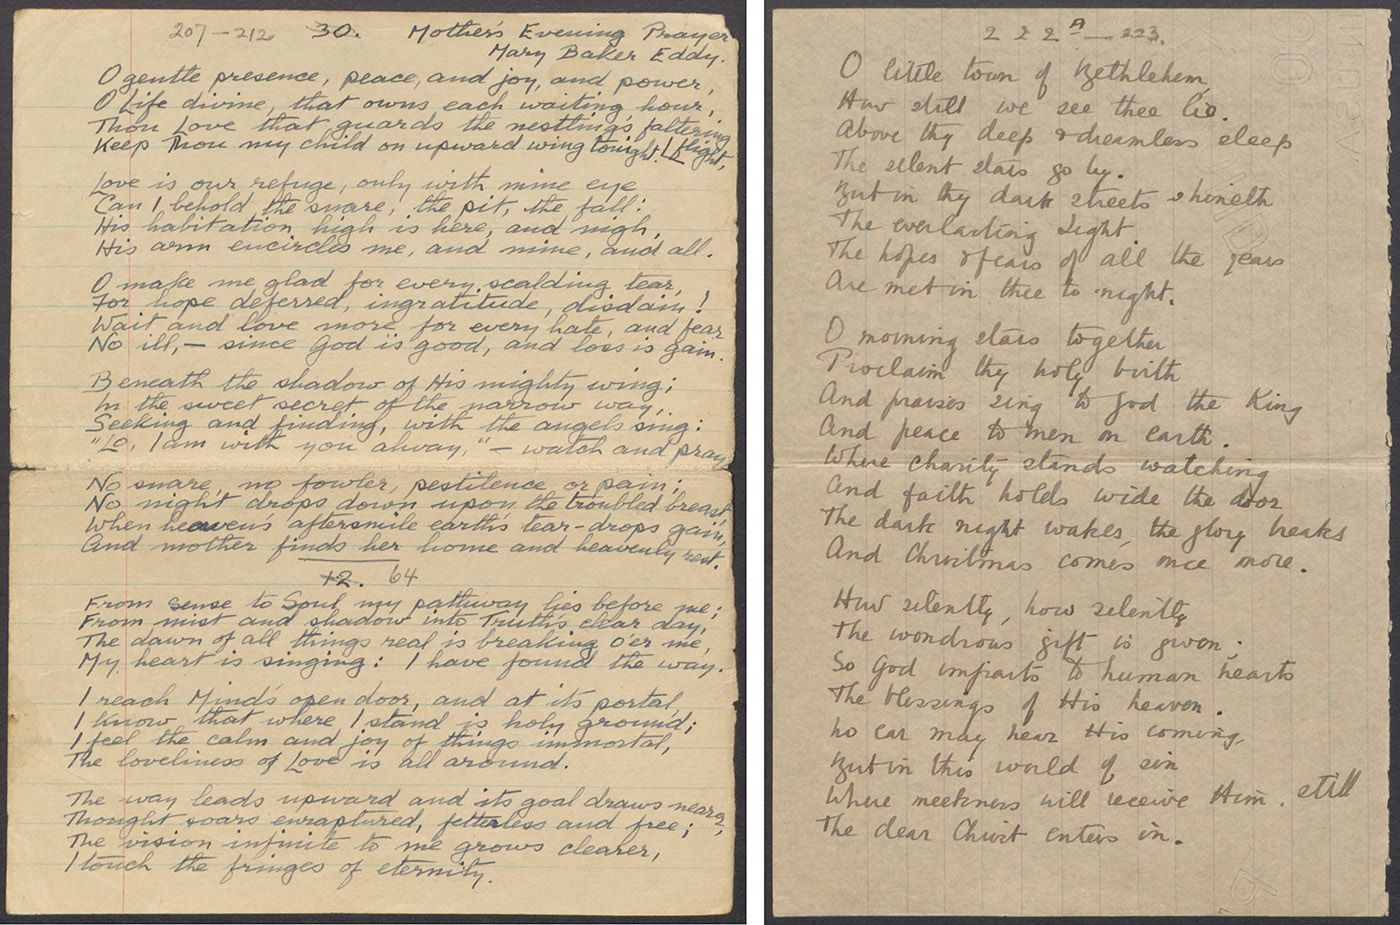 207–212 30. Mother's Evening Prayer
Mary Baker Eddy.
O gentle presence, peace, and joy, and power,
O Life divine, that owns each waiting hour,
Thou Love that guards the nestling's faltering
flight,
Keep Thou my child on upward wing tonight.
Love is our refuge, only with mine eye
Can I behold the snare, the pit, the fall:
His habitation high is here, and nigh,
His arm encircles me, and mine, and all.
O make me glad for every scalding tear,
For hope deferred, ingratitude, disdain!
Wait and love more for every hate, and fear
No ill, — since God is good, and loss is gain.
Beneath the shadow of His mighty wing;
In the sweet secret of the narrow way,
Seeking and finding, with the angels sing:
"Lo, I am with you alway," — watch and pray
No snare, no fowler, pestilence or pain;
No night drops down upon the troubled breast,
When heaven's aftersmile earth's tear-drops gain,
And mother finds her home and heavenly rest.
12. 64
From sense to Soul my pathway lies before me;
From mist and shadow into Truth's clear day,
The dawn of all things real is breaking o'er me,
My heart is singing: I have found the way.
I reach Mind's open door, and at its portal
I know that where I stand is holy ground;
I feel the calm and joy of things immortal,
The loveliness of Love is all around.
The way leads upward and its goal draws nearer,
Thought soars enraptured, fetterless and free;
The vision infinite to me grows clearer,
I touch the fringes of eternity.
222A — 223.
O little town of Bethlehem,
How still we see thee lie.
Above thy deep & dreamless sleep
The silent stars go by.
But in thy dark streets shineth
The everlasting Light
The hopes & fears of all the years
Are met in thee to night.
O morning stars together
Proclaim thy holy birth
And praises sing to God the King
And peace to men on earth.
Where charity stands watching
And faith holds wide the door
The dark night wakes, the glory breaks
And Christmas comes once more.
How silently, how silently
The wondrous gift is given;
So God imparts to human hearts
The blessings of His heaven.
No ear may hear His coming,
But in this world of sin
Where meekness will receive Him. still
The dear Christ enters in.